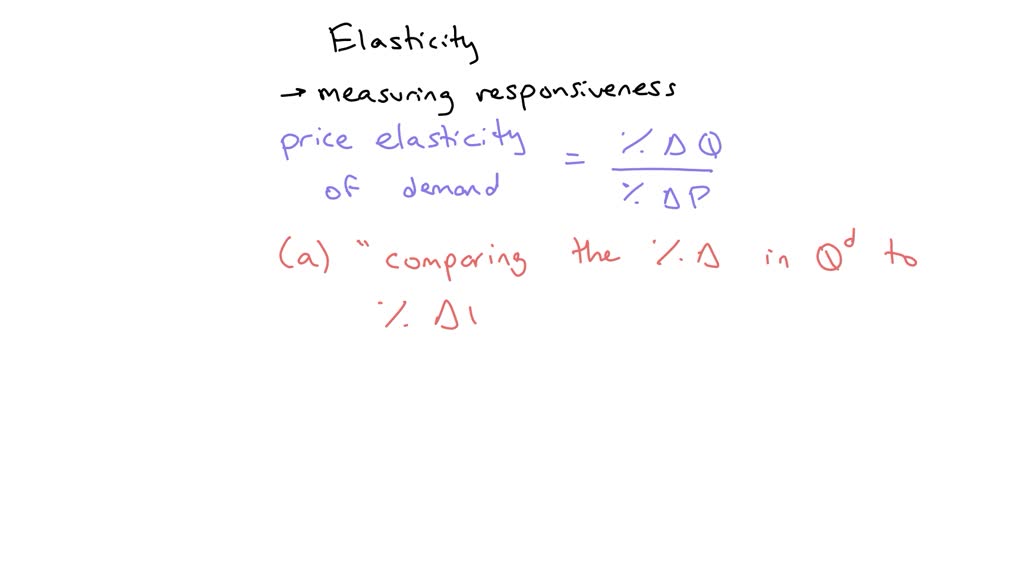 Elasticity
→ measuring responsiveness
price elasticity of demand = % Δ Q / % Δ P
(a) " comparing the % Δ in Qᵈ to
% Δ